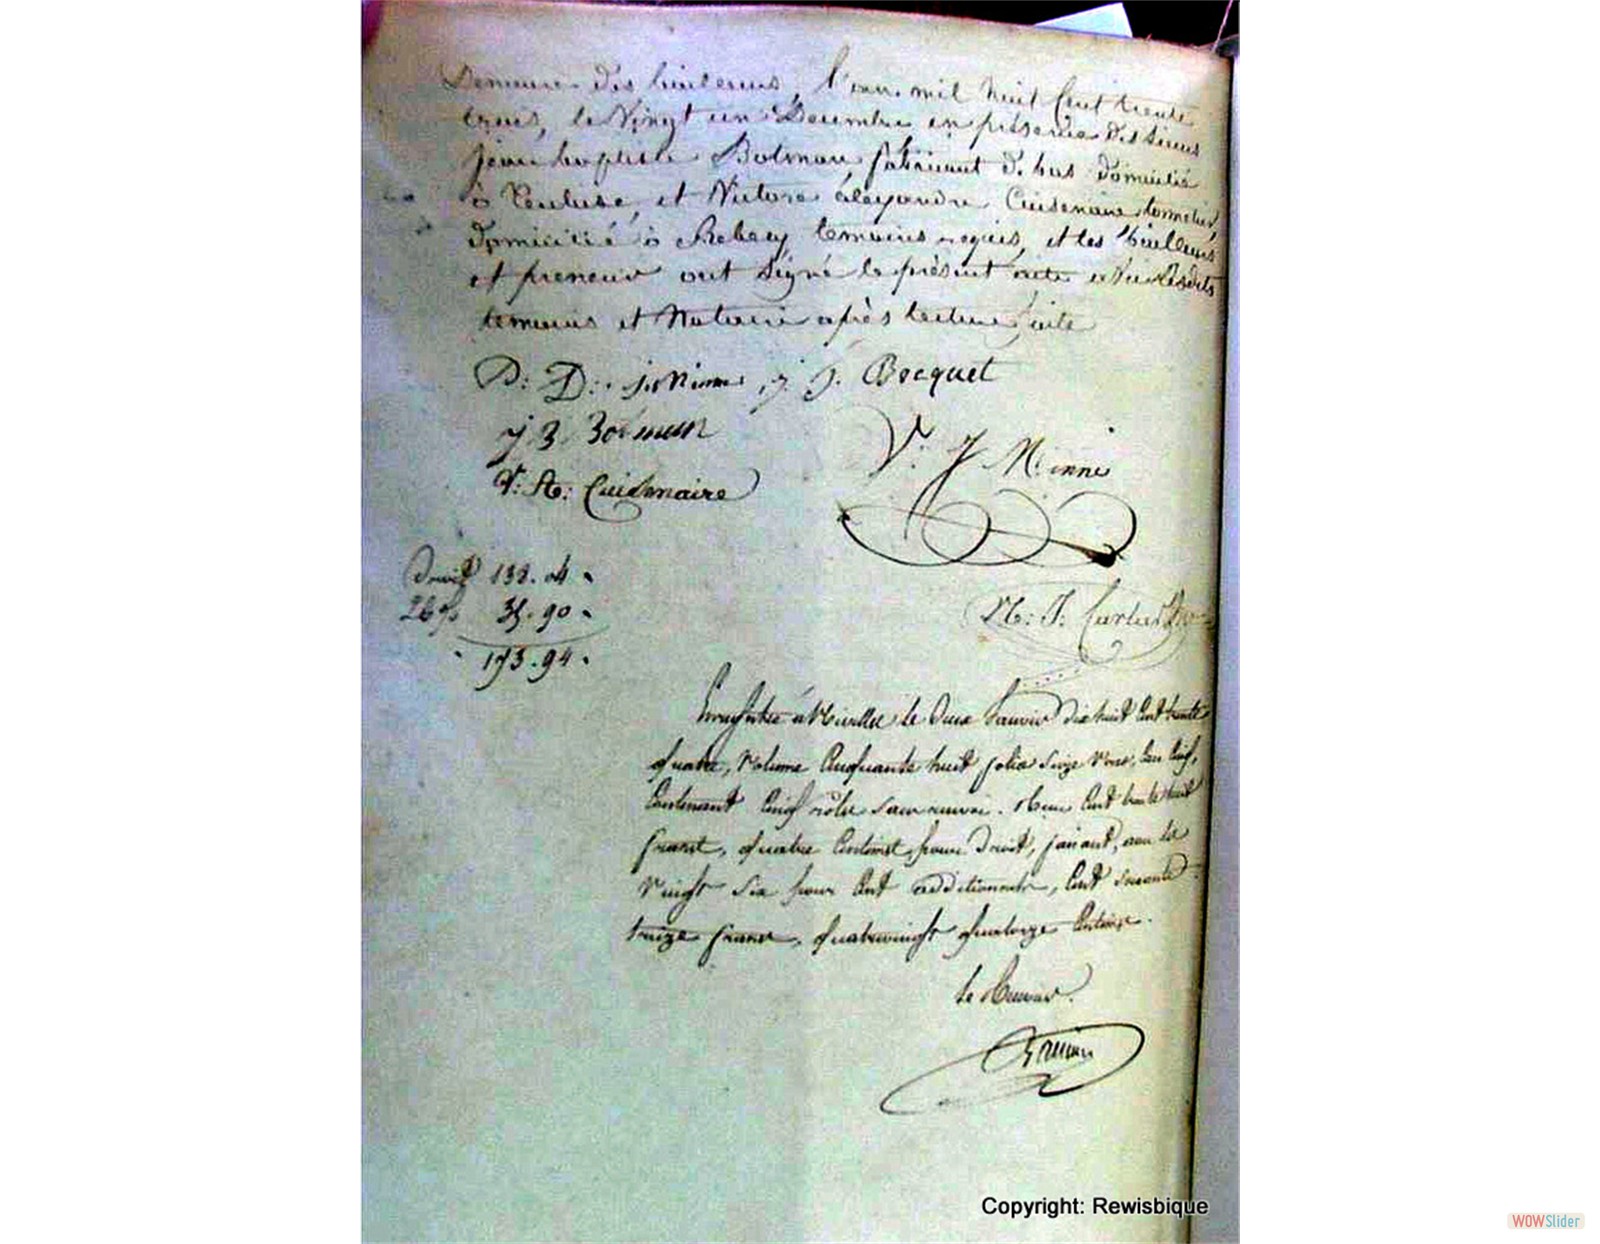 Demeure des bailleurs, l'an mil huit Cent trente
trois, le Vingt un Decembre en présence des sieurs
Jean baptiste Botman, fabricant de bas domicilié
à et Victore alexandre Cuisenaire tonnelier,
domicilié à Rebecq temoins requis, et les bailleurs
et preneur ont signé le présent acte avec lesdits
temoins et Notaire après lecture faite
D: D: j J. Bocquet
J B Botman
V: J Minne
V: A: Cuisenaire
Droit 138.04
26 % 35.90
173.94
N: J:
Enregistré à Nivelles le deux Janvier dix huit Cent trente
quatre, Volume Cinquante huit folio Seize Verso, Case Cinq,
Contenant Cinq rôles sans renvoi. Reçu Cent trente huit
francs, quatre Centimes pour droit, faisant, avec les
Vingt Six pour Cent additionnels, Cent soixante
treize francs, quatrevingt quatorze Centimes.
Le Receveur.
Copyright: Rewisbique
WOWSlider